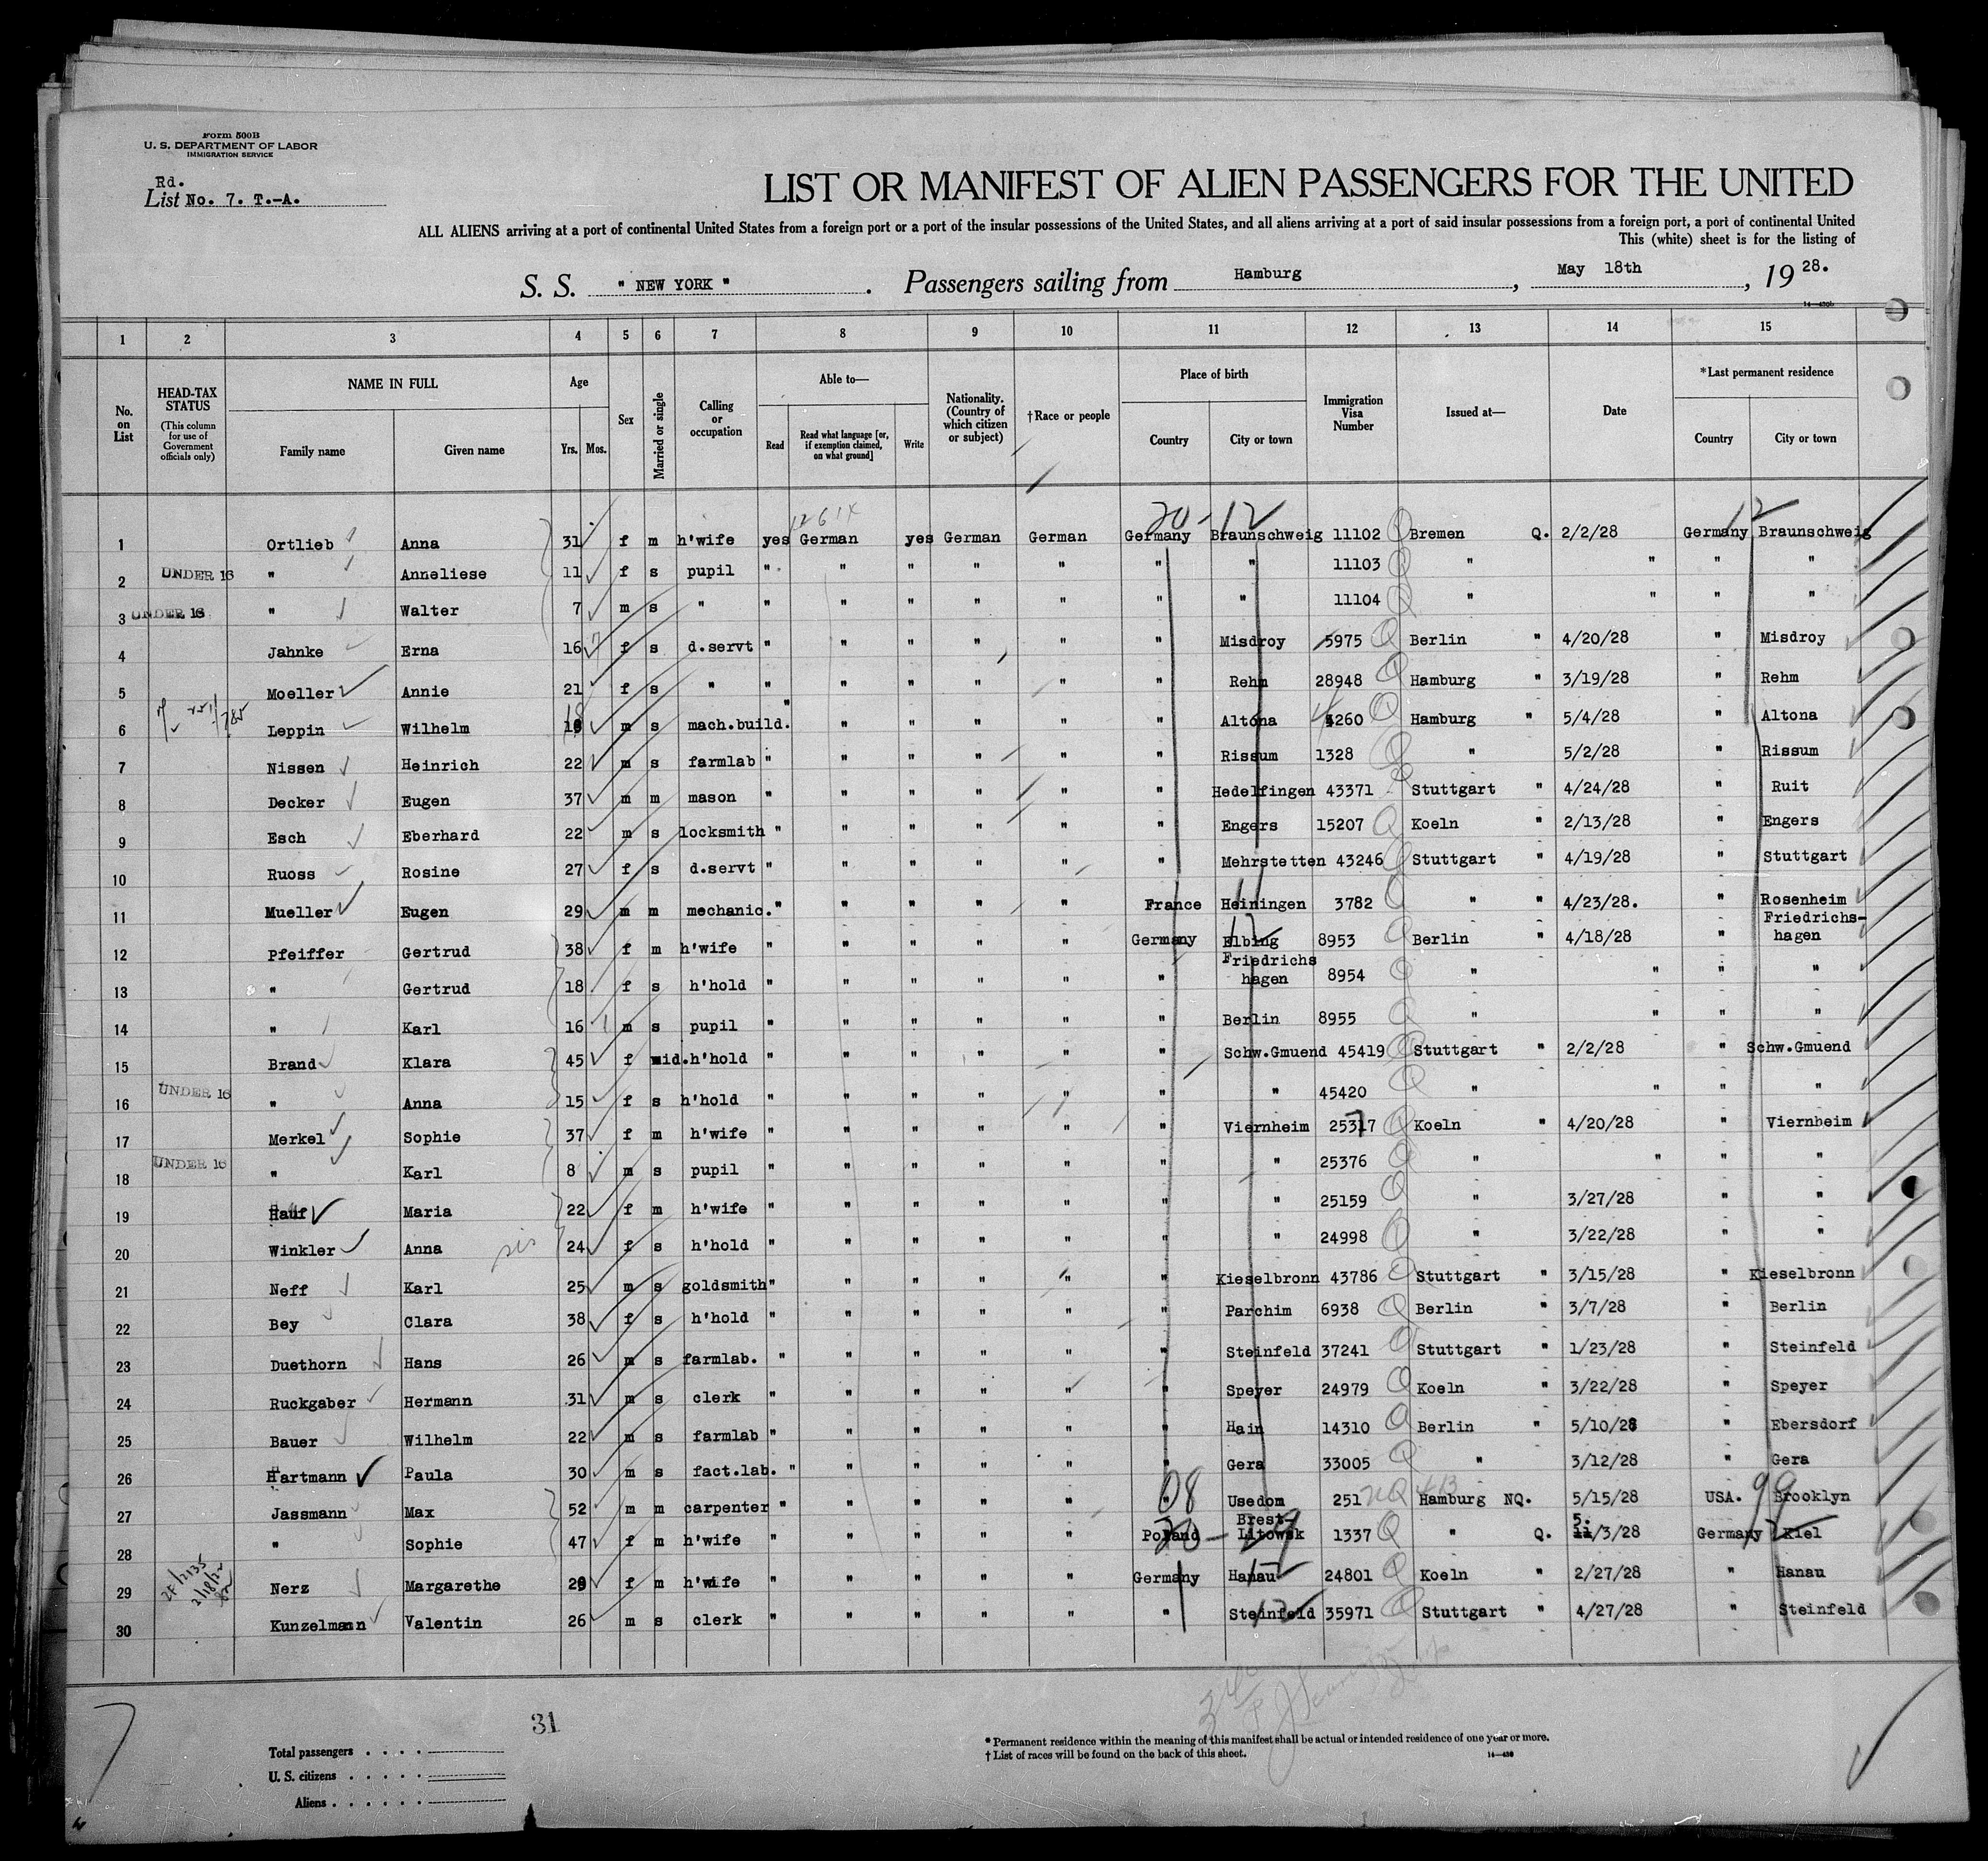 Form 500B
U. S. DEPARTMENT OF LABOR
IMMIGRATION SERVICE
Rd.
List No. 7. T.-A.
LIST OR MANIFEST OF ALIEN PASSENGERS FOR THE UNITED
ALL ALIENS arriving at a port of continental United States from a foreign port or a port of the insular possessions of the United States, and all aliens arriving at a port of said insular possessions from a foreign port, a port of continental United
This (white) sheet is for the listing of
S. S. " NEW YORK " . Passengers sailing from Hamburg , May 18th , 19 28.
14—430b
1 2 3 4 5 6 7 8 9 10 11 12 13 14 15
No. on List
HEAD-TAX STATUS (This column for use of Government officials only)
NAME IN FULL Family name Given name
Age Yrs. Mos.
Sex
Married or single
Calling or occupation
Able to— Read Read what language [or, if exemption claimed, on what ground] Write
Nationality. (Country of which citizen or subject)
†Race or people
Place of birth Country City or town
Immigration Visa Number
Issued at—
Date
*Last permanent residence Country City or town
20 - 12 12
1 Ortlieb Anna 31 f m h'wife yes German yes German German Germany Braunschweig 11102 Q Bremen Q. 2/2/28 Germany Braunschweig
2 UNDER 16 " Anneliese 11 f s pupil " " " " " " " 11103 Q " " " "
3 UNDER 16 " Walter 7 m s " " " " " " " " 11104 Q " " " "
4 Jahnke Erna 16 f s d.servt " " " " " " Misdroy 5975 Q Berlin " 4/20/28 " Misdroy
5 Moeller Annie 21 f s " " " " " " " Rehm 28948 Q Hamburg " 3/19/28 " Rehm
6 Leppin Wilhelm 18 m s mach.build. " " " " " " Altona 4260 Q Hamburg " 5/4/28 " Altona
7 Nissen Heinrich 22 m s farmlab " " " " " " Rissum 1328 Q " 5/2/28 " Rissum
8 Decker Eugen 37 m m mason " " " " " " Hedelfingen 43371 Q Stuttgart " 4/24/28 " Ruit
9 Esch Eberhard 22 m s locksmith " " " " " " Engers 15207 Q Koeln " 2/13/28 " Engers
10 Ruoss Rosine 27 f s d.servt " " " " " " Mehrstetten 43246 Q Stuttgart " 4/19/28 " Stuttgart
11 Mueller Eugen 29 m m mechanic. " " " " " France Heiningen 3782 Q " " 4/23/28. " Rosenheim
12 Pfeiffer Gertrud 38 f m h'wife " " " " " Germany Elbing 8953 Q Berlin " 4/18/28 " Friedrichs-hagen
13 " Gertrud 18 f s h'hold " " " " " " Friedrichs hagen 8954 Q " " " "
14 " Karl 16 m s pupil " " " " " " Berlin 8955 Q " " " "
15 Brand Klara 45 f wid. h'hold " " " " " " Schw.Gmuend 45419 Q Stuttgart " 2/2/28 " Schw.Gmuend
16 UNDER 16 " Anna 15 f s h'hold " " " " " " " 45420 Q " " " "
17 Merkel Sophie 37 f m h'wife " " " " " " Viernheim 25377 Q Koeln " 4/20/28 " Viernheim
18 UNDER 16 " Karl 8 m s pupil " " " " " " " 25376 Q " " " "
19 Hauf Maria 22 f m h'wife " " " " " " " 25159 Q " 3/27/28 " "
20 Winkler Anna sis 24 f s h'hold " " " " " " " 24998 Q " 3/22/28 " "
21 Neff Karl 25 m s goldsmith " " " " " " Kieselbronn 43786 Q Stuttgart " 3/15/28 " Kieselbronn
22 Bey Clara 38 f s h'hold " " " " " " Parchim 6938 Q Berlin " 3/7/28 " Berlin
23 Duethorn Hans 26 m s farmlab. " " " " " " Steinfeld 37241 Q Stuttgart " 1/23/28 " Steinfeld
24 Ruckgaber Hermann 31 m s clerk " " " " " " Speyer 24979 Q Koeln " 3/22/28 " Speyer
25 Bauer Wilhelm 22 m s farmlab " " " " " " Hain 14310 Q Berlin " 5/10/28 " Ebersdorf
26 Hartmann Paula 30 m s fact.lab. " " " " " " Gera 33005 Q " 3/12/28 " Gera
27 Jassmann Max 52 m m carpenter " " " " " " Usedom 251 NQ Hamburg NQ. 5/15/28 USA. Brooklyn
28 " Sophie 47 f m h'wife " " " " " Poland Brest-Litowsk 1337 Q " Q. 5./3/28 Germany Kiel
29 Nerz Margarethe 29 f m h'wife " " " " " Germany Hanau 24801 Q Koeln " 2/27/28 " Hanau
30 Kunzelmann Valentin 26 m s clerk " " " " " " Steinfeld 35971 Q Stuttgart " 4/27/28 " Steinfeld
31
Total passengers
U. S. citizens
Aliens
* Permanent residence within the meaning of this manifest shall be actual or intended residence of one year or more.
† List of races will be found on the back of this sheet.
14—430